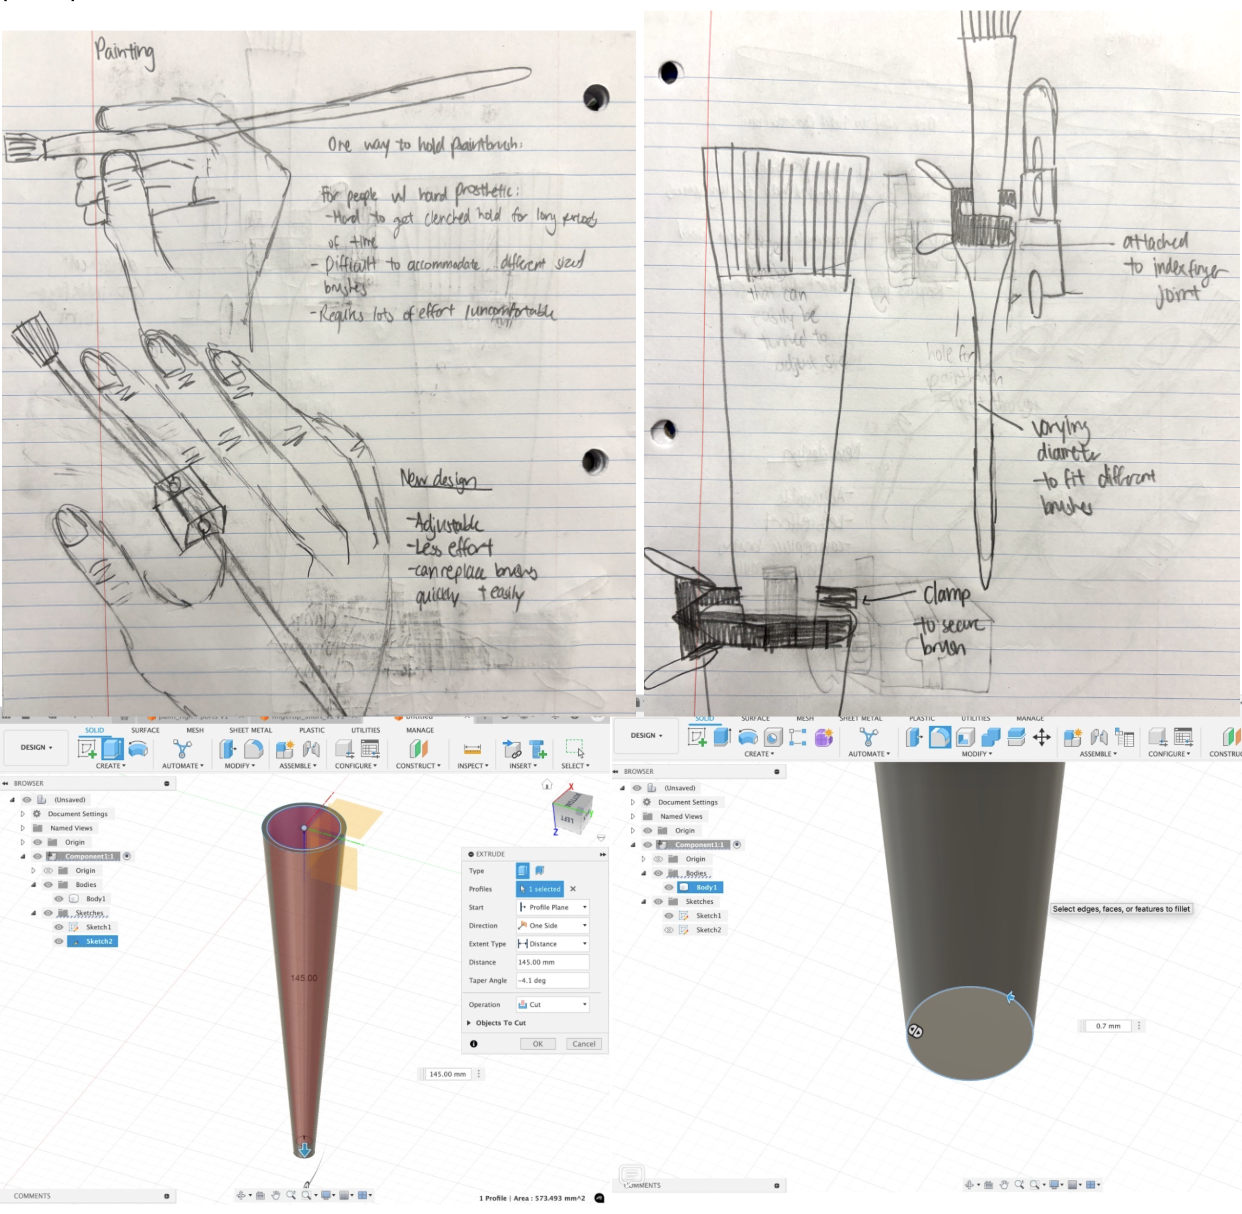 Painting
One way to hold paintbrush:
For people w/ hand prosthetic:
- Hard to get clenched hold for long periods
of time
- Difficult to accommodate different sized
brushes
- Requires lots of effort / uncomfortable
New design
- Adjustable
- Less effort
- can replace brushes
quickly + easily
attached
to index finger
joint
that can
easily be
turned to
hole for
varying
diameter
to fit different
brushes
clamp
to secure
brush
SOLID SURFACE MESH SHEET METAL PLASTIC UTILITIES MANAGE
DESIGN
CREATE AUTOMATE MODIFY ASSEMBLE CONFIGURE CONSTRUCT INSPECT INSERT SELECT
BROWSER
(Unsaved)
Document Settings
Named Views
Origin
Component1:1
Origin
Bodies
Body1
Sketches
Sketch1
Sketch2
145.00
BOTTOM
LEFT
X
Z
EXTRUDE
Type
Profiles 1 selected
Start Profile Plane
Direction One Side
Extent Type Distance
Distance 145.00 mm
Taper Angle -4.1 deg
Operation Cut
Objects To Cut
OK Cancel
145.00 mm
COMMENTS
1 Profile | Area : 573.493 mm^2
SOLID SURFACE MESH SHEET METAL PLASTIC UTILITIES MANAGE
DESIGN
CREATE AUTOMATE MODIFY ASSEMBLE CONFIGURE CONSTRU
BROWSER
(Unsaved)
Document Settings
Named Views
Origin
Component1:1
Origin
Bodies
Body1
Sketches
Sketch1
Sketch2
Select edges, faces, or features to fillet
0.7 mm
COMMENTS